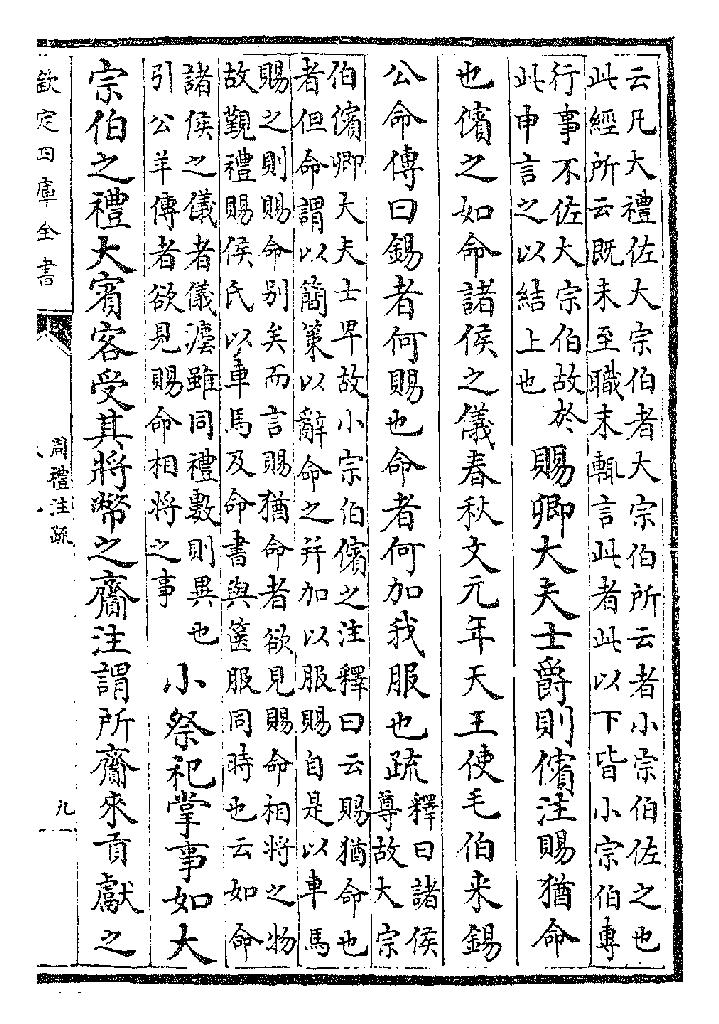 云凡大禮佐大宗伯者大宗伯所云者小宗伯佐之也
此經所云既未至職末輒言此者此以下皆小宗伯專
行事不佐大宗伯故於
此申言之以結上也
賜卿大夫士爵則儐注賜猶命
也儐之如命諸侯之儀春秋文元年天王使毛伯来錫
公命傳曰錫者何賜也命者何加我服也疏
釋曰諸侯
尊故大宗
伯儐卿大夫士卑故小宗伯儐之注釋曰云賜猶命也
者但命謂以簡策以辭命之并加以服賜自是以車馬
賜之則賜命别矣而言賜猶命者欲見賜命相將之物
故覲禮賜侯氏以車馬及命書與篋服同時也云如命
諸侯之儀者儀灋雖同禮數則異也
引公羊傳者欲見賜命相將之事
小祭祀掌事如大
宗伯之禮大賓客受其將幣之齎注謂所齎來貢獻之
欽定四庫全書
周禮注疏
九